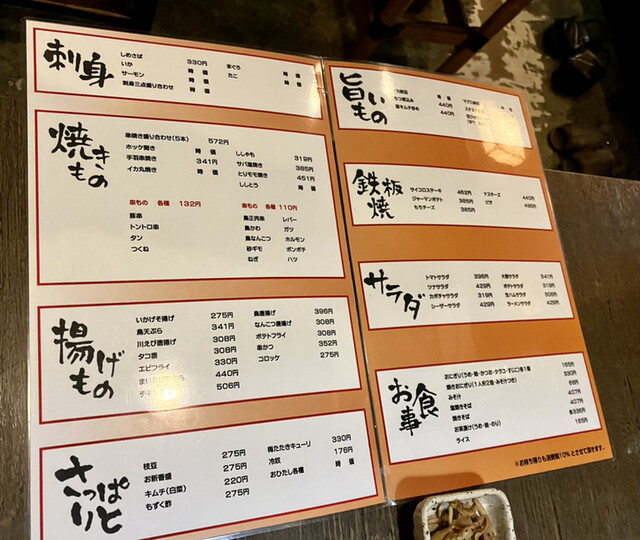 刺身
しめさば 330円
いか 時価
サーモン 時価
刺身三点盛り合わせ 時価
まぐろ 時価
たこ 時価
焼きもの
串焼き盛り合わせ(5本) 572円
ホッケ開き 時価
手羽串焼き 341円
イカ丸焼き 時価
ししゃも 319円
サバ塩焼き 385円
とりモモ焼き 451円
ししとう 時価
串もの 各種 132円
豚串
トントロ串
タン
つくね
串もの 各種 110円
鳥正肉串 レバー
鳥かわ ガツ
鳥なんこつ ホルモン
砂ギモ ボンボチ
ねぎ ハツ
揚げもの
いかげそ揚げ 275円
鳥天ぷら 341円
川えび唐揚げ 308円
タコ唐 308円
エビフライ 330円
440円
506円
鳥唐揚げ 396円
なんこつ唐揚げ 308円
ポテトフライ 308円
串かつ 352円
コロッケ 275円
さっぱりと
枝豆 275円
お新香盛 275円
キムチ(白菜) 220円
もずく酢 275円
梅たたきキューリ 330円
冷奴 176円
おひたし各種 時価
旨いもの
時価
もつ煮込み 440円
豚キムチ炒め 440円
鉄板焼
サイコロステーキ 462円
ジャーマンポテト 385円
もちチーズ 385円
ナスチーズ 440円
ピザ 495円
サラダ
トマトサラダ 396円
ツナサラダ 429円
カボチャサラダ 319円
シーザーサラダ 429円
大根サラダ 341円
ポテトサラダ 319円
生ハムサラダ 506円
ラーメンサラダ 429円
お食事
おにぎり(うめ・鮭・かつお・タラコ・すじこ)各1個 165円
焼きおにぎり(1人前2個・みそ汁つき) 330円
みそ汁 66円
塩焼きそば 407円
焼きそば 407円
お茶漬け(うめ・鮭・のり) 各336円
ライス 165円
※お持ち帰りも消費税10%とさせて頂きます。